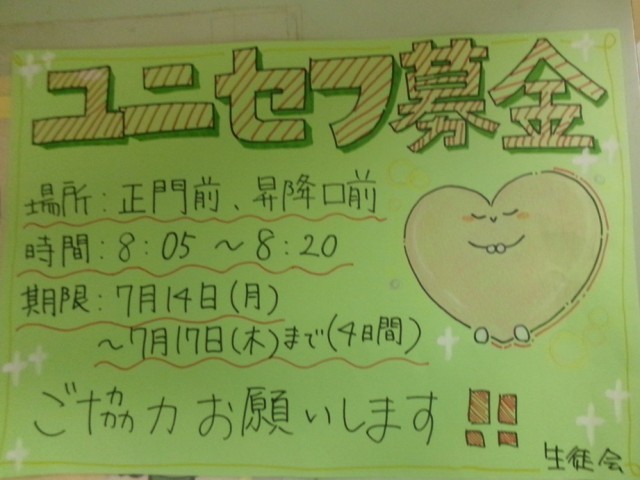 ユニセフ募金
場所:正門前、昇降口前
時間:8:05〜8:20
期限:7月14日(月)
〜7月17日(木)まで(4日間)
ご協力お願いします!!
生徒会